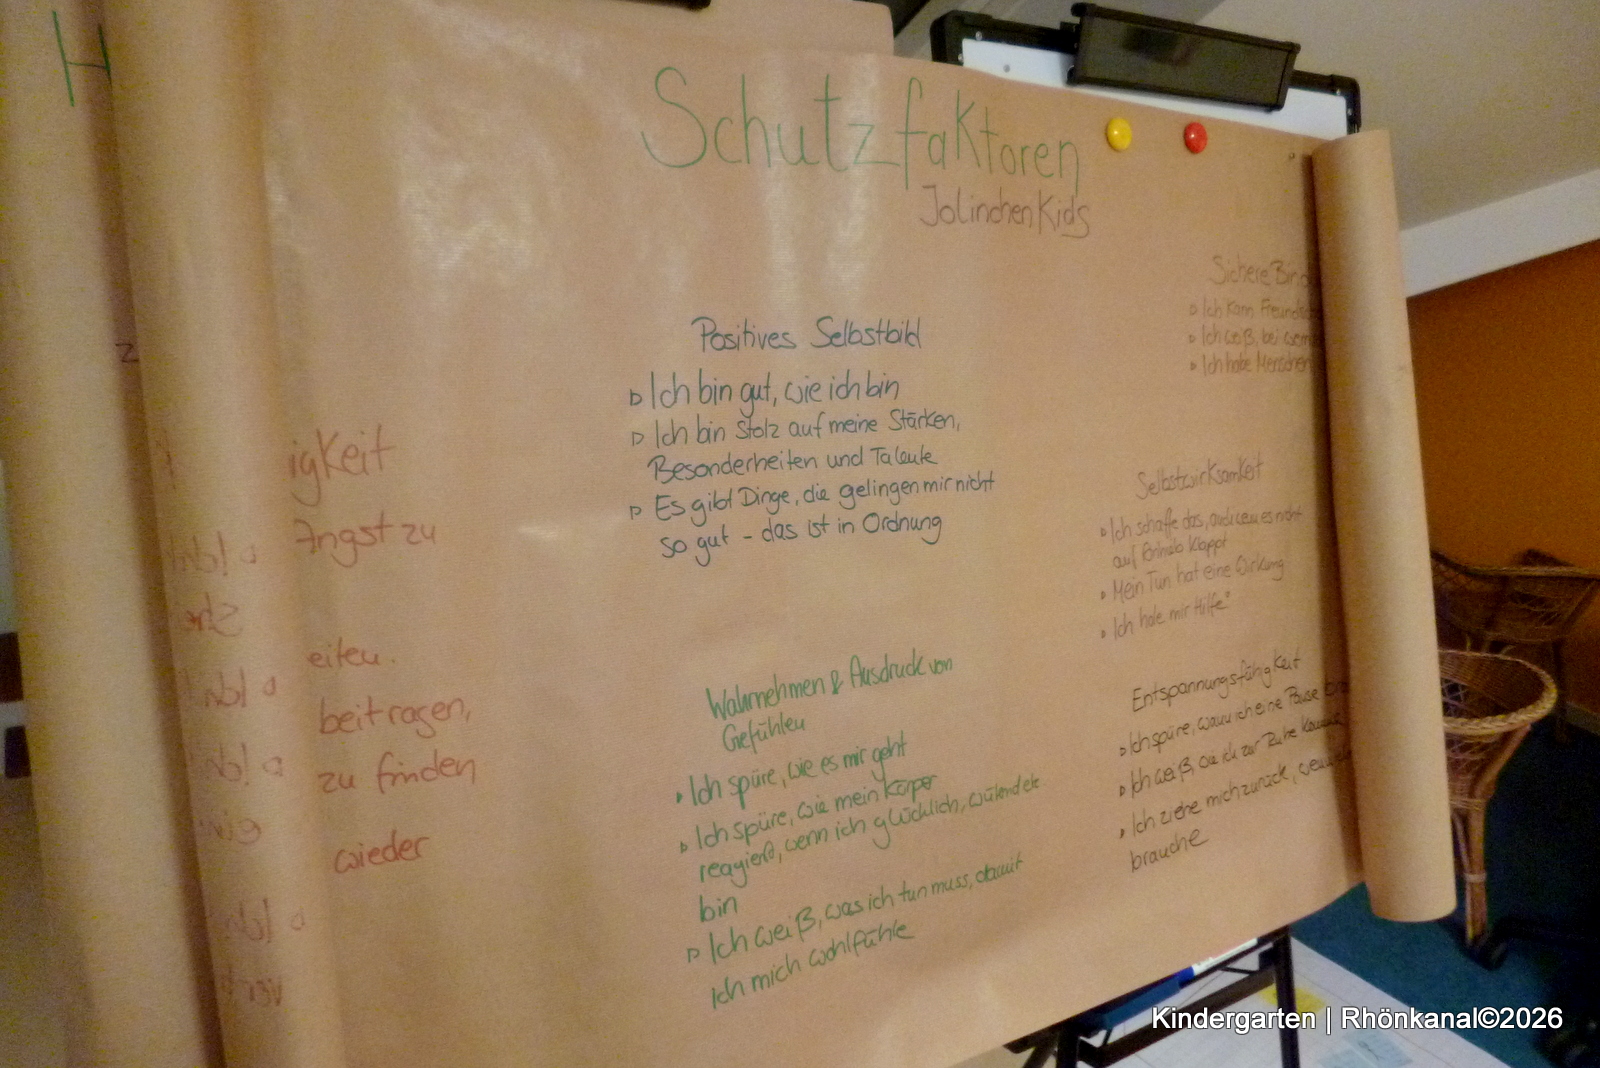 H
Schutzfaktoren
JolinchenKids
igkeit
Angst zu
eiten.
beitragen,
zu finden
wieder
Positives Selbstbild
Ich bin gut, wie ich bin
Ich bin stolz auf meine Stärken,
Besonderheiten und Talente
Es gibt Dinge, die gelingen mir nicht
so gut - das ist in Ordnung
Wahrnehmen & Ausdruck von
Gefühlen
Ich spüre, wie es mir geht
Ich spüre, wie mein Körper
reagiert, wenn ich glücklich, wütend etc
bin
Ich weiß, was ich tun muss, damit
ich mich wohlfühle
Sichere Bin
Ich kann Freunds
Ich weiß, bei wem
Ich habe Menschen
Selbstwirksamkeit
Ich schaffe das, auch wenn es nicht
auf Anhieb klappt
Mein Tun hat eine Wirkung
Ich hole mir Hilfe"
Entspannungsfähigkeit
Ich spüre, wann ich eine Pause
Ich weiß, wie ich zur Ruhe komme
Ich ziehe mich zurück, wenn
brauche
Kindergarten | Rhönkanal©2026